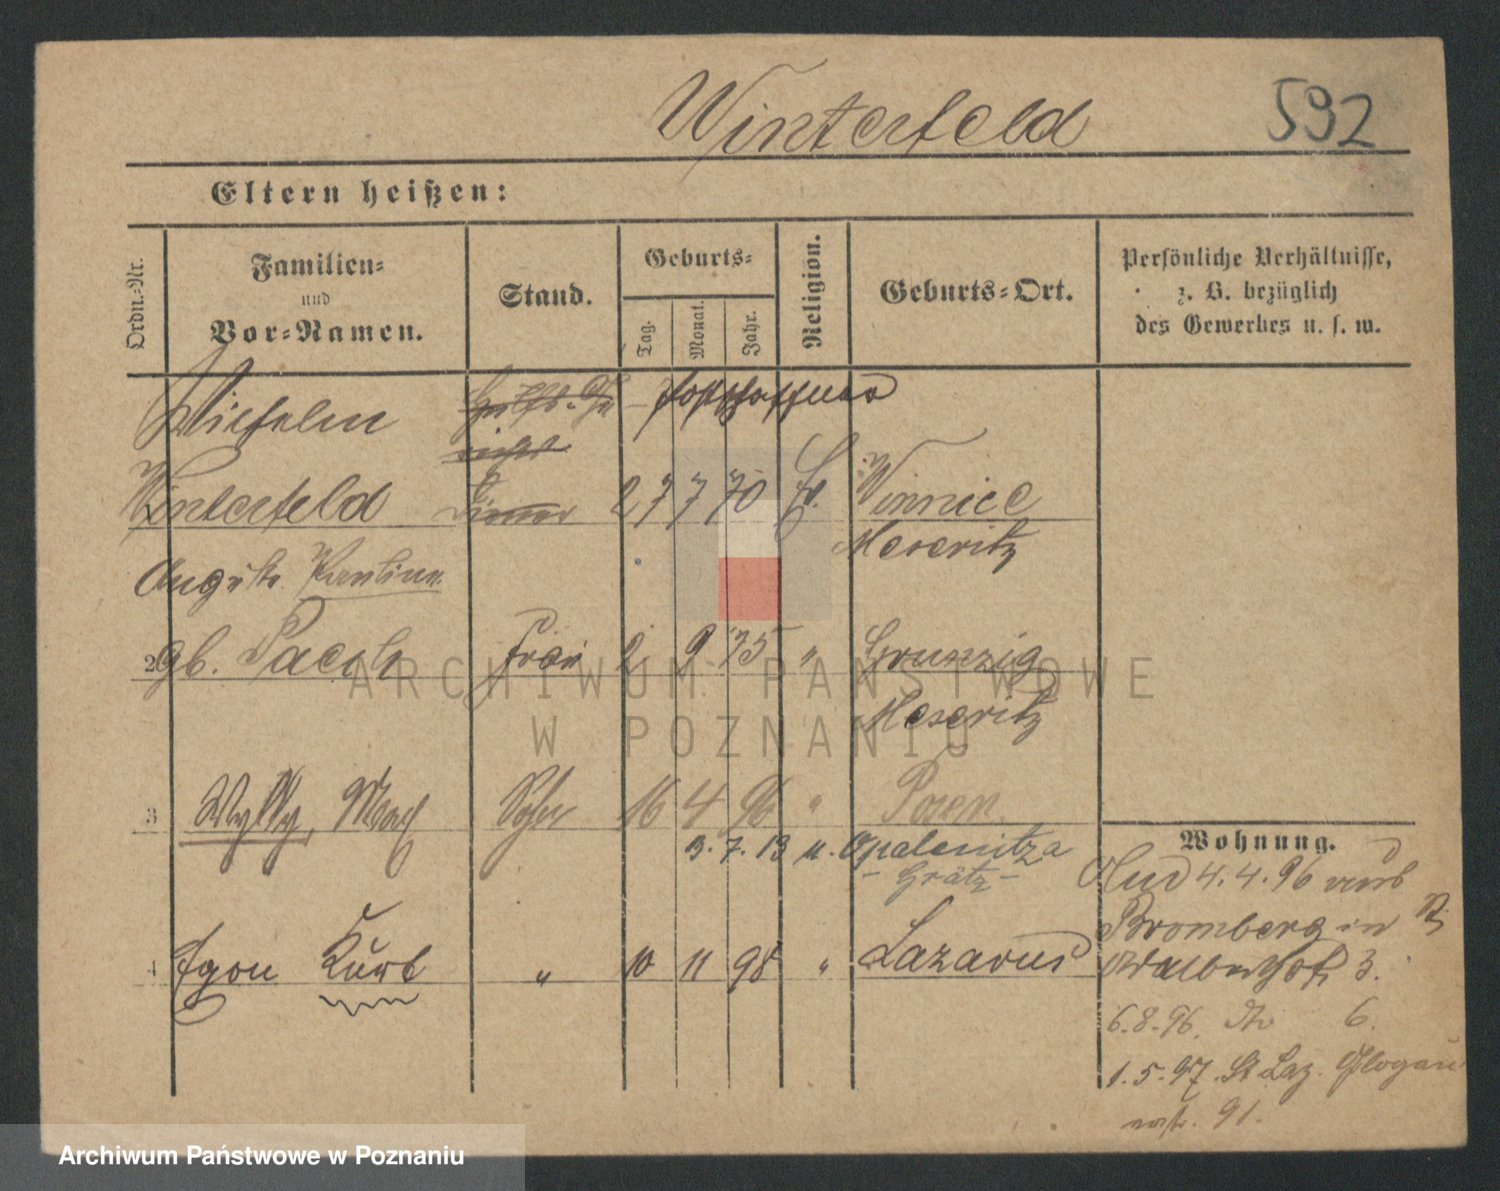 Winterfeld 592
Eltern heißen:
Ordn.-Nr. Familien- und Vor-Namen. Stand. Geburts- Tag. Monat. Jahr. Religion. Geburts-Ort. Persönliche Verhältnisse, z. B. bezüglich des Gewerbes u. s. w.
Wilhelm
Winterfeld 27 7 70 Ev. Winnice
Meseritz
Auguste Pauline
2 gb. Frau 2 9 75 " Grunzig
Meseritz
3 Willy, Max Sohn 16 4 96 " Posen
3. 7. 13 n. Opalenitza
- Grätz -
Wohnung.
4.4.96
Bromberg in
4 Egon Kurt " 10 11 98 " Lazarus 3.
6.8.96. 6.
1.5.97. St Laz. Glogau
91.
ARCHIWUM PAŃSTWOWE
W POZNANIU
Archiwum Państwowe w Poznaniu